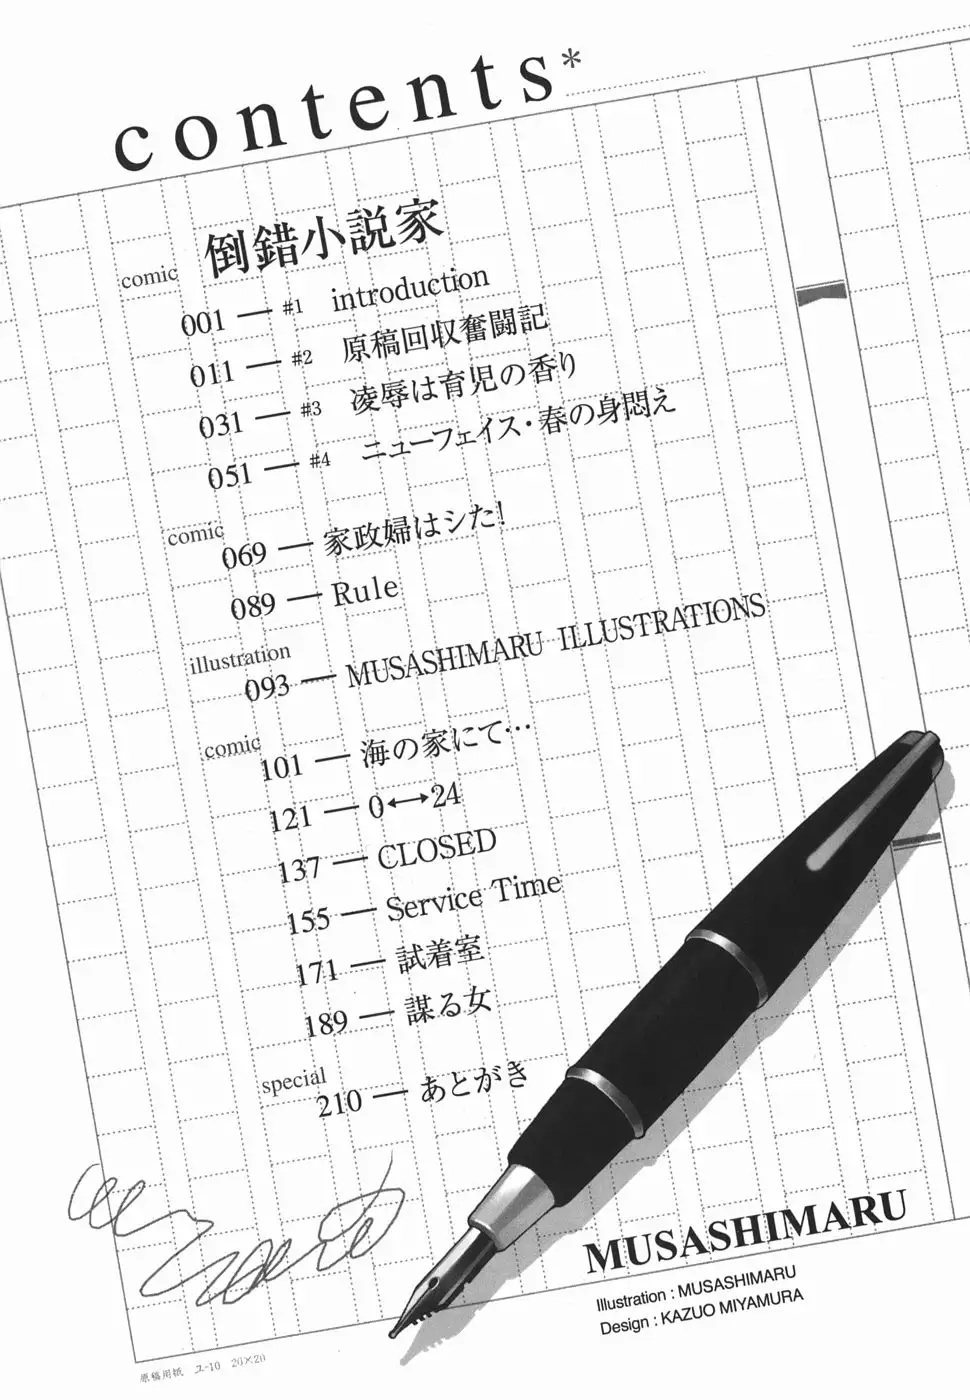 contents*
comic
倒錯小説家
001 — #1 introduction
011 — #2 原稿回収奮闘記
031 — #3 凌辱は育児の香り
051 — #4 ニューフェイス・春の身悶え
comic
069 — 家政婦はシた!
089 — Rule
illustration
093 — MUSASHIMARU ILLUSTRATIONS
comic
101 — 海の家にて…
121 — 0↔24
137 — CLOSED
155 — Service Time
171 — 試着室
189 — 謀る女
special
210 — あとがき
MUSASHIMARU
Illustration : MUSASHIMARU
Design : KAZUO MIYAMURA
原稿用紙 ユ-10 20×20